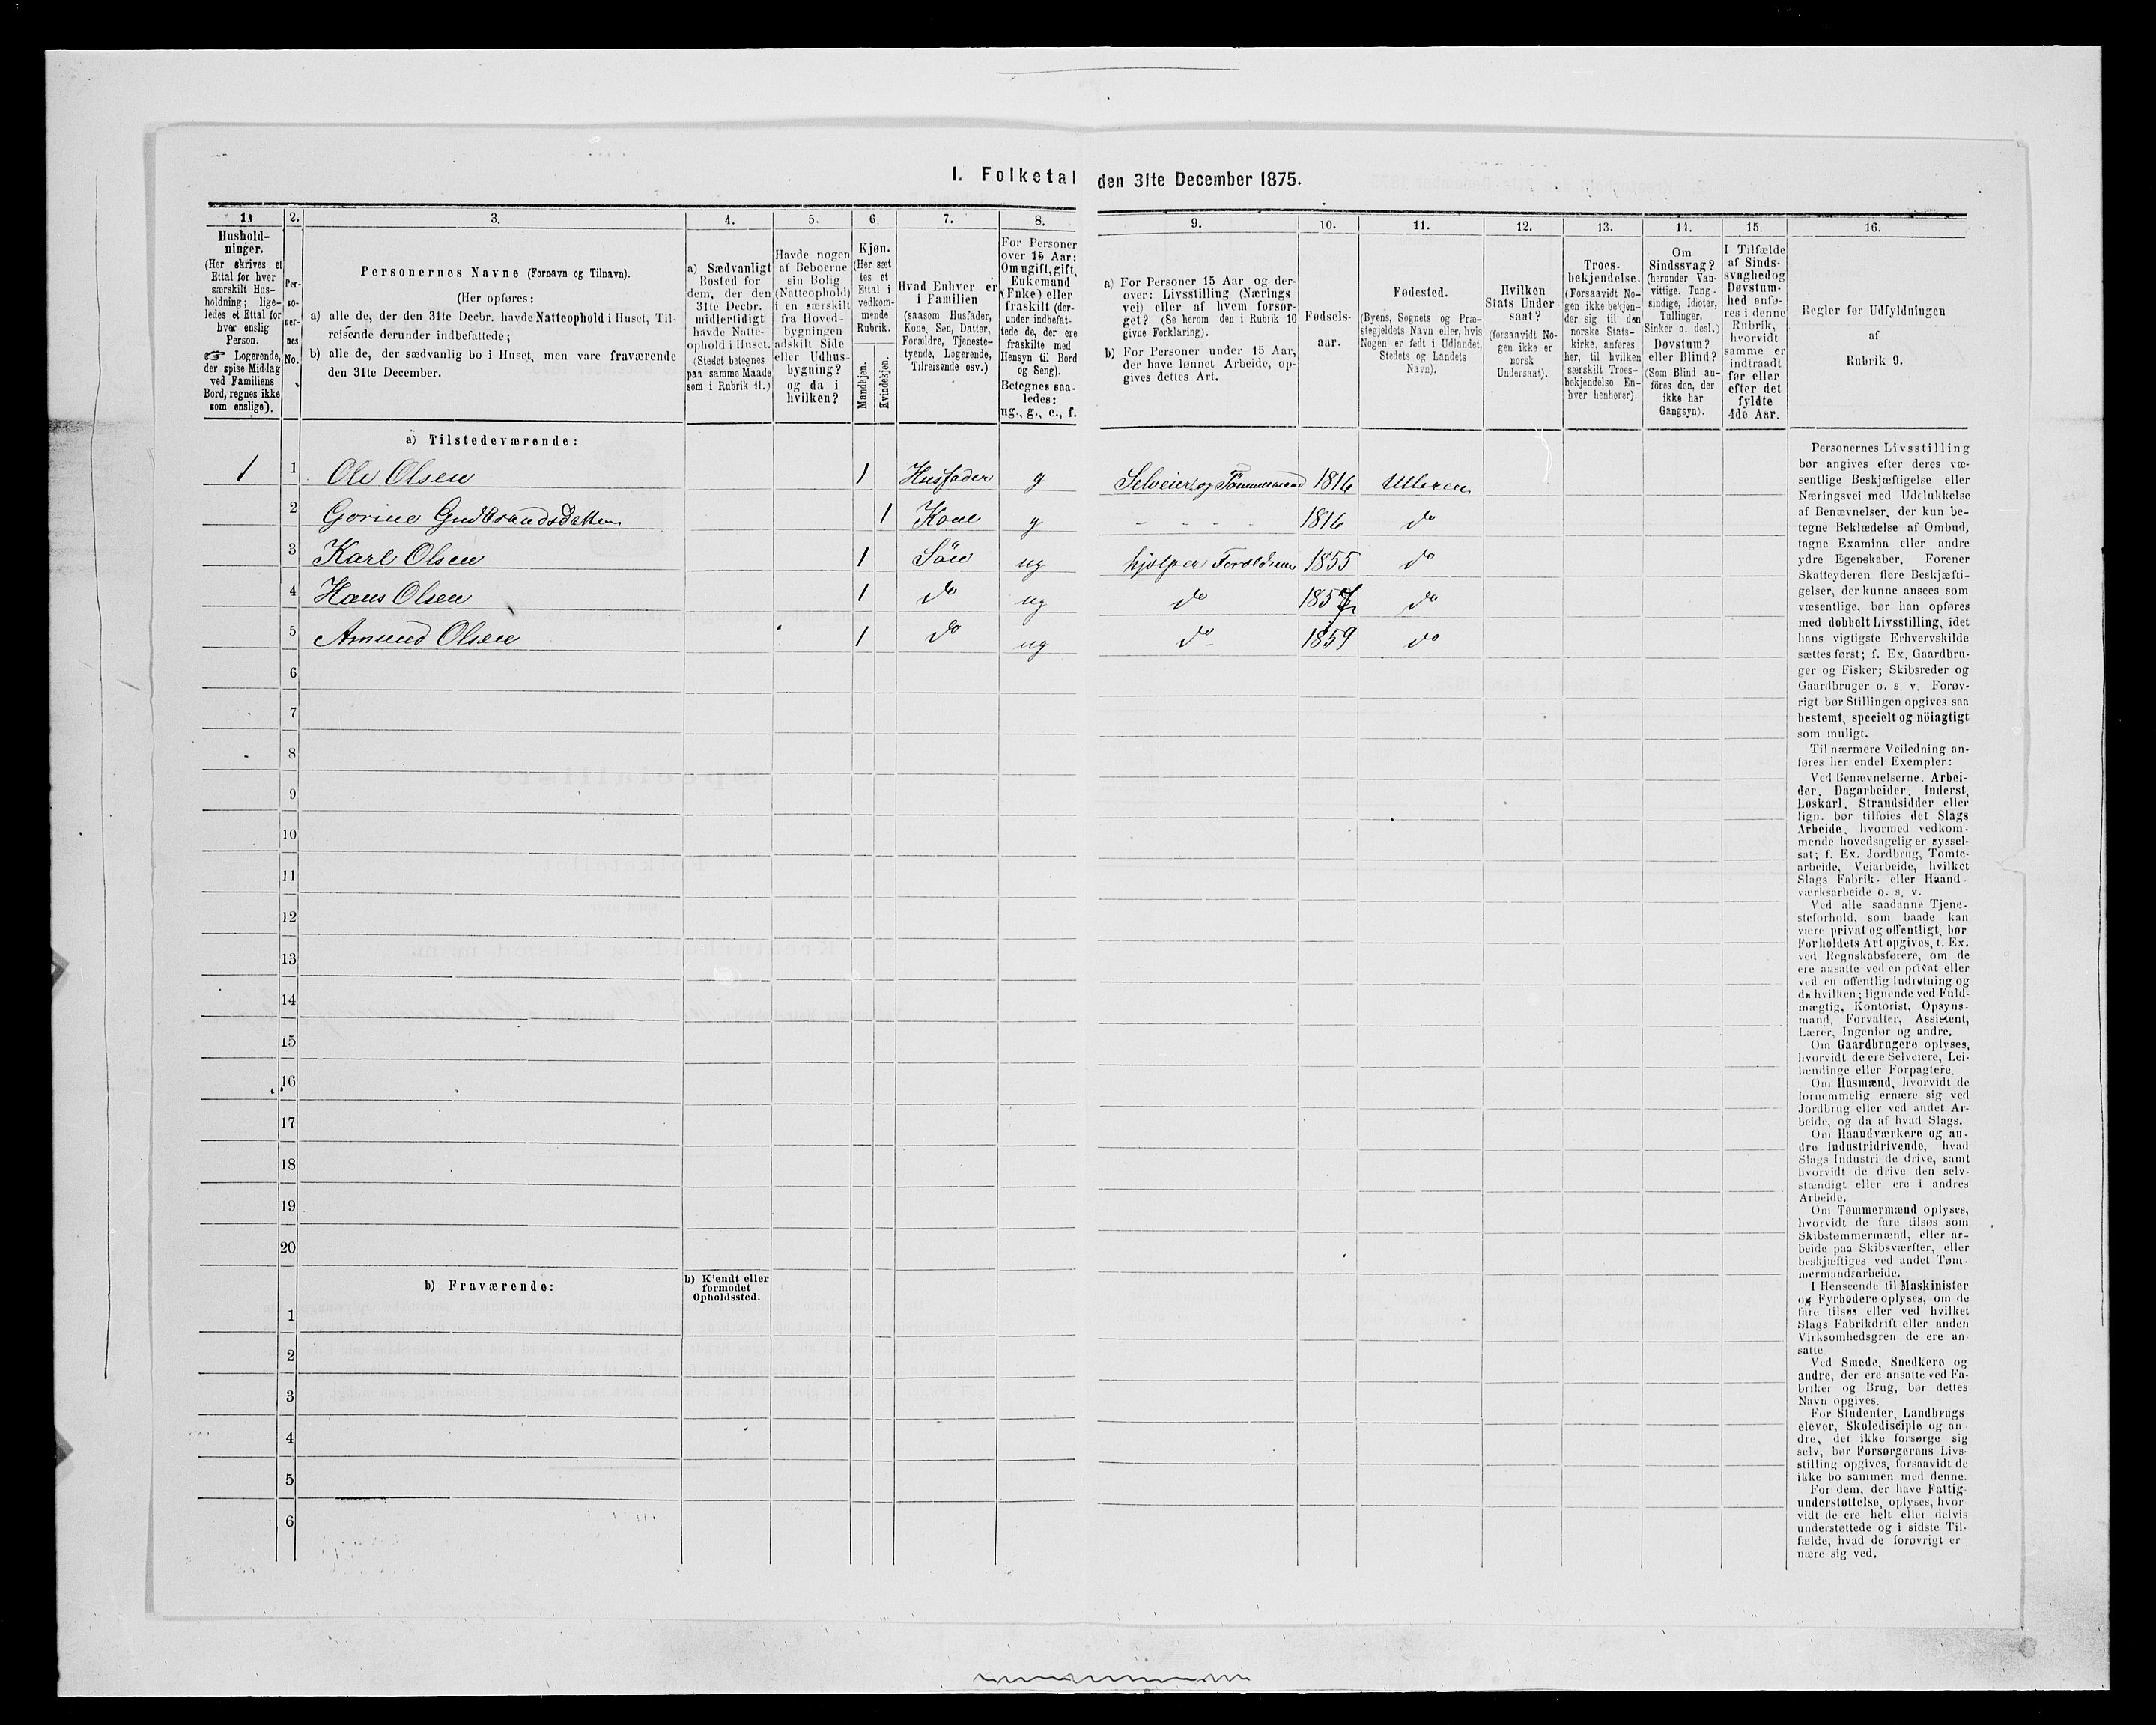 I. Folketal den 31te December 1875.
1. 2. 3. 4. 5. 6. 7. 8. 9. 10. 11. 12. 13. 14. 15. 16.
Hushold-
ninger.
(Her skrives et
Ettal for hver
særskilt Hus-
holdning; lige-
ledes et Ettal for
hver enslig
Person.
☞ Logerende,
der spise Middag
ved Familiens
Bord, regnes ikke
som enslige).
Per-
so-
ner-
nes
No.
Personernes Navne (Fornavn og Tilnavn).
(Her opføres:
a) alle de, der den 31te Decbr. havde Natteophold i Huset, Til-
reisende derunder indbefattede;
b) alle de, der sædvanlig bo i Huset, men vare fraværende
den 31te December.
a) Sædvanligt
Bosted for
dem, der den
31te Decbr.
midlertidigt
havde Natte-
ophold i Huset.
(Stedet betegnes
paa samme Maade
som i Rubrik 11.)
Havde nogen
af Beboerne
sin Bolig
(Natteophold)
i en særskilt
fra Hoved-
bygningen
adskilt Side
eller Udhus-
bygning?
og da i
hvilken?
Kjøn.
(Her sæt
tes et
Ettal i
vedkom-
mende
Rubrik.
Mandkjøn.
Kvindekjøn.
Hvad Enhver er
i Familien
(saasom Husfader,
Kone, Søn, Datter,
Forældre, Tjeneste-
tyende, Logerende,
Tilreisende osv.)
For Personer
over 15 Aar:
Om ugift, gift,
Enkemand
(Enke) eller
fraskilt (der-
under indbefat-
tede de, der ere
fraskilte med
Hensyn til Bord
og Seng).
Betegnes saa-
ledes:
ug., g., e., f.
a) For Personer 15 Aar og der-
over: Livsstilling (Nærings
vei) eller af hvem forsør-
get? (Se herom den i Rubrik 16
givne Forklaring).
b) For Personer under 15 Aar,
der have lønnet Arbeide, op-
gives dettes Art.
Fødsels-
aar.
Fødested.
(Byens, Sognets og Præ-
stegjeldets Navn eller, hvis
Nogen er født i Udlandet,
Stedets og Landets
Navn).
Hvilken
Stats Under
saat?
(forsaavidt No-
gen ikke er
norsk
Undersaat).
Troes-
bekjendelse.
(Forsaavidt No-
gen ikke bekjen-
der sig til den
norske Stats-
kirke, anføres
her, til hvilken
særskilt Troes-
bekjendelse En-
hver henhører).
Om
Sindssvag?
(herunder Van-
vittige, Tung-
sindige, Idioter,
Tullinger,
Sinker o. desl.)
Døvstum?
eller Blind?
(Som Blind an-
føres den, der
ikke har
Gangsyn).
I Tilfælde
af Sinds-
svaghed og
Døvstum-
hed anfø-
res i denne
Rubrik,
hvorvidt
samme er
indtraadt
før eller
efter det
fyldte
4de Aar.
Regler for Udfyldningen
af
Rubrik 9.
a) Tilstedeværende:
1 1 Ole Olsen 1 Husfader g Selveier og Tømmermand 1816 Ulleren
2 Gorine Gudbrandsdatter 1 Kone g - - - - 1816 do
3 Karl Olsen 1 Søn ug hjælper Forældrene 1855 do
4 Hans Olsen 1 do ug do 1857 do
5 Amund Olsen 1 do ug do 1859 do
6
7
8
9
10
11
12
13
14
15
16
17
18
19
20
b) Fraværende:
b) Kjendt eller
formodet
Opholdssted.
1
2
3
4
5
6
Personernes Livsstilling
bør angives efter deres væ-
sentlige Beskjæftigelse eller
Næringsvei med Udelukkelse
af Benævnelser, der kun be-
tegne Beklædelse af Ombud,
tagne Examina eller andre
ydre Egenskaber. Forener
Skatteyderen flere Beskjæfti-
gelser, der kunne ansees som
væsentlige, bør han opføres
med dobbelt Livsstilling, idet
hans vigtigste Erhvervskilde
sættes først; f. Ex. Gaardbru-
ger og Fisker; Skibsreder og
Gaardbruger o. s. v. Forøv-
rigt bør Stillingen opgives saa
bestemt, specielt og nöiagtigt
som muligt.
Til nærmere Veiledning an-
føres her endel Exempler:
Ved Benævnelserne, Arbei-
der, Dagarbeider, Inderst,
Løskarl, Strandsidder eller
lign. bør tilføies det Slags
Arbeide, hvormed vedkom-
mende hovedsagelig er syssel-
sat; f. Ex. Jordbrug, Tomte-
arbeide, Veiarbeide, hvilket
Slags Fabrik- eller Haand
værksarbeide o. s. v.
Ved alle saadanne Tjene-
steforhold, som baade kan
være privat og offentligt, bør
Forholdets Art opgives, t. Ex.
ved Regnskabsførere, om de
ere ansatte ved en privat eller
ved en offentlig Indretning og
da hvilken; lignende ved Fuld-
mægtig, Kontorist, Opsyns-
mand, Forvalter, Assistent,
Lærer, Ingeniør og andre.
Om Gaardbrugere oplyses,
hvorvidt de ere Selveiere, Lei-
lændinge eller Forpagtere.
Om Husmænd, hvorvidt de
fornemmelig ernære sig ved
Jordbrug eller ved andet Ar-
beide, og da af hvad Slags.
Om Haandværkere og an-
dre Industridrivende, hvad
Slags Industri de drive, samt
hvorvidt de drive den selv-
stændigt eller ere i andres
Arbeide.
Om Tømmermænd oplyses,
hvorvidt de fare tilsøs som
Skibstømmermænd, eller ar-
beide paa Skibsværfter, eller
beskjæftiges ved andet Tøm-
mermandsarbeide.
I Henseende til Maskinister
og Fyrbødere oplyses, om de
fare tilsøs eller ved hvilket
Slags Fabrikdrift eller anden
Virksomhedsgren de ere an-
satte.
Ved Smede, Snedkere og
andre, der ere ansatte ved Fa-
briker og Brug, bør dettes
Navn opgives.
For Studenter, Landbrugs
elever, Skoledisciple og an
dre, der ikke forsørge sig
selv, bør Forsørgerens Livs-
stilling opgives, forsaavidt de
ikke bo sammen med denne.
For dem, der have Fattig
understøttelse, oplyses, hvor
vidt de ere helt eller delvis
understøttede og i sidste Til-
fælde, hvad de forøvrigt er
nære sig ved.